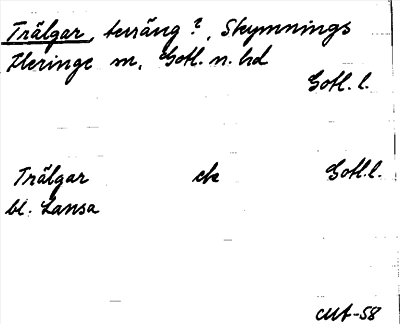 Trälgar, terräng?, Skymnings
Fleringe sn, Gotl. n. hd
Gotl. l.
Trälgar ek Gotl. l.
bl. Lansa
-58